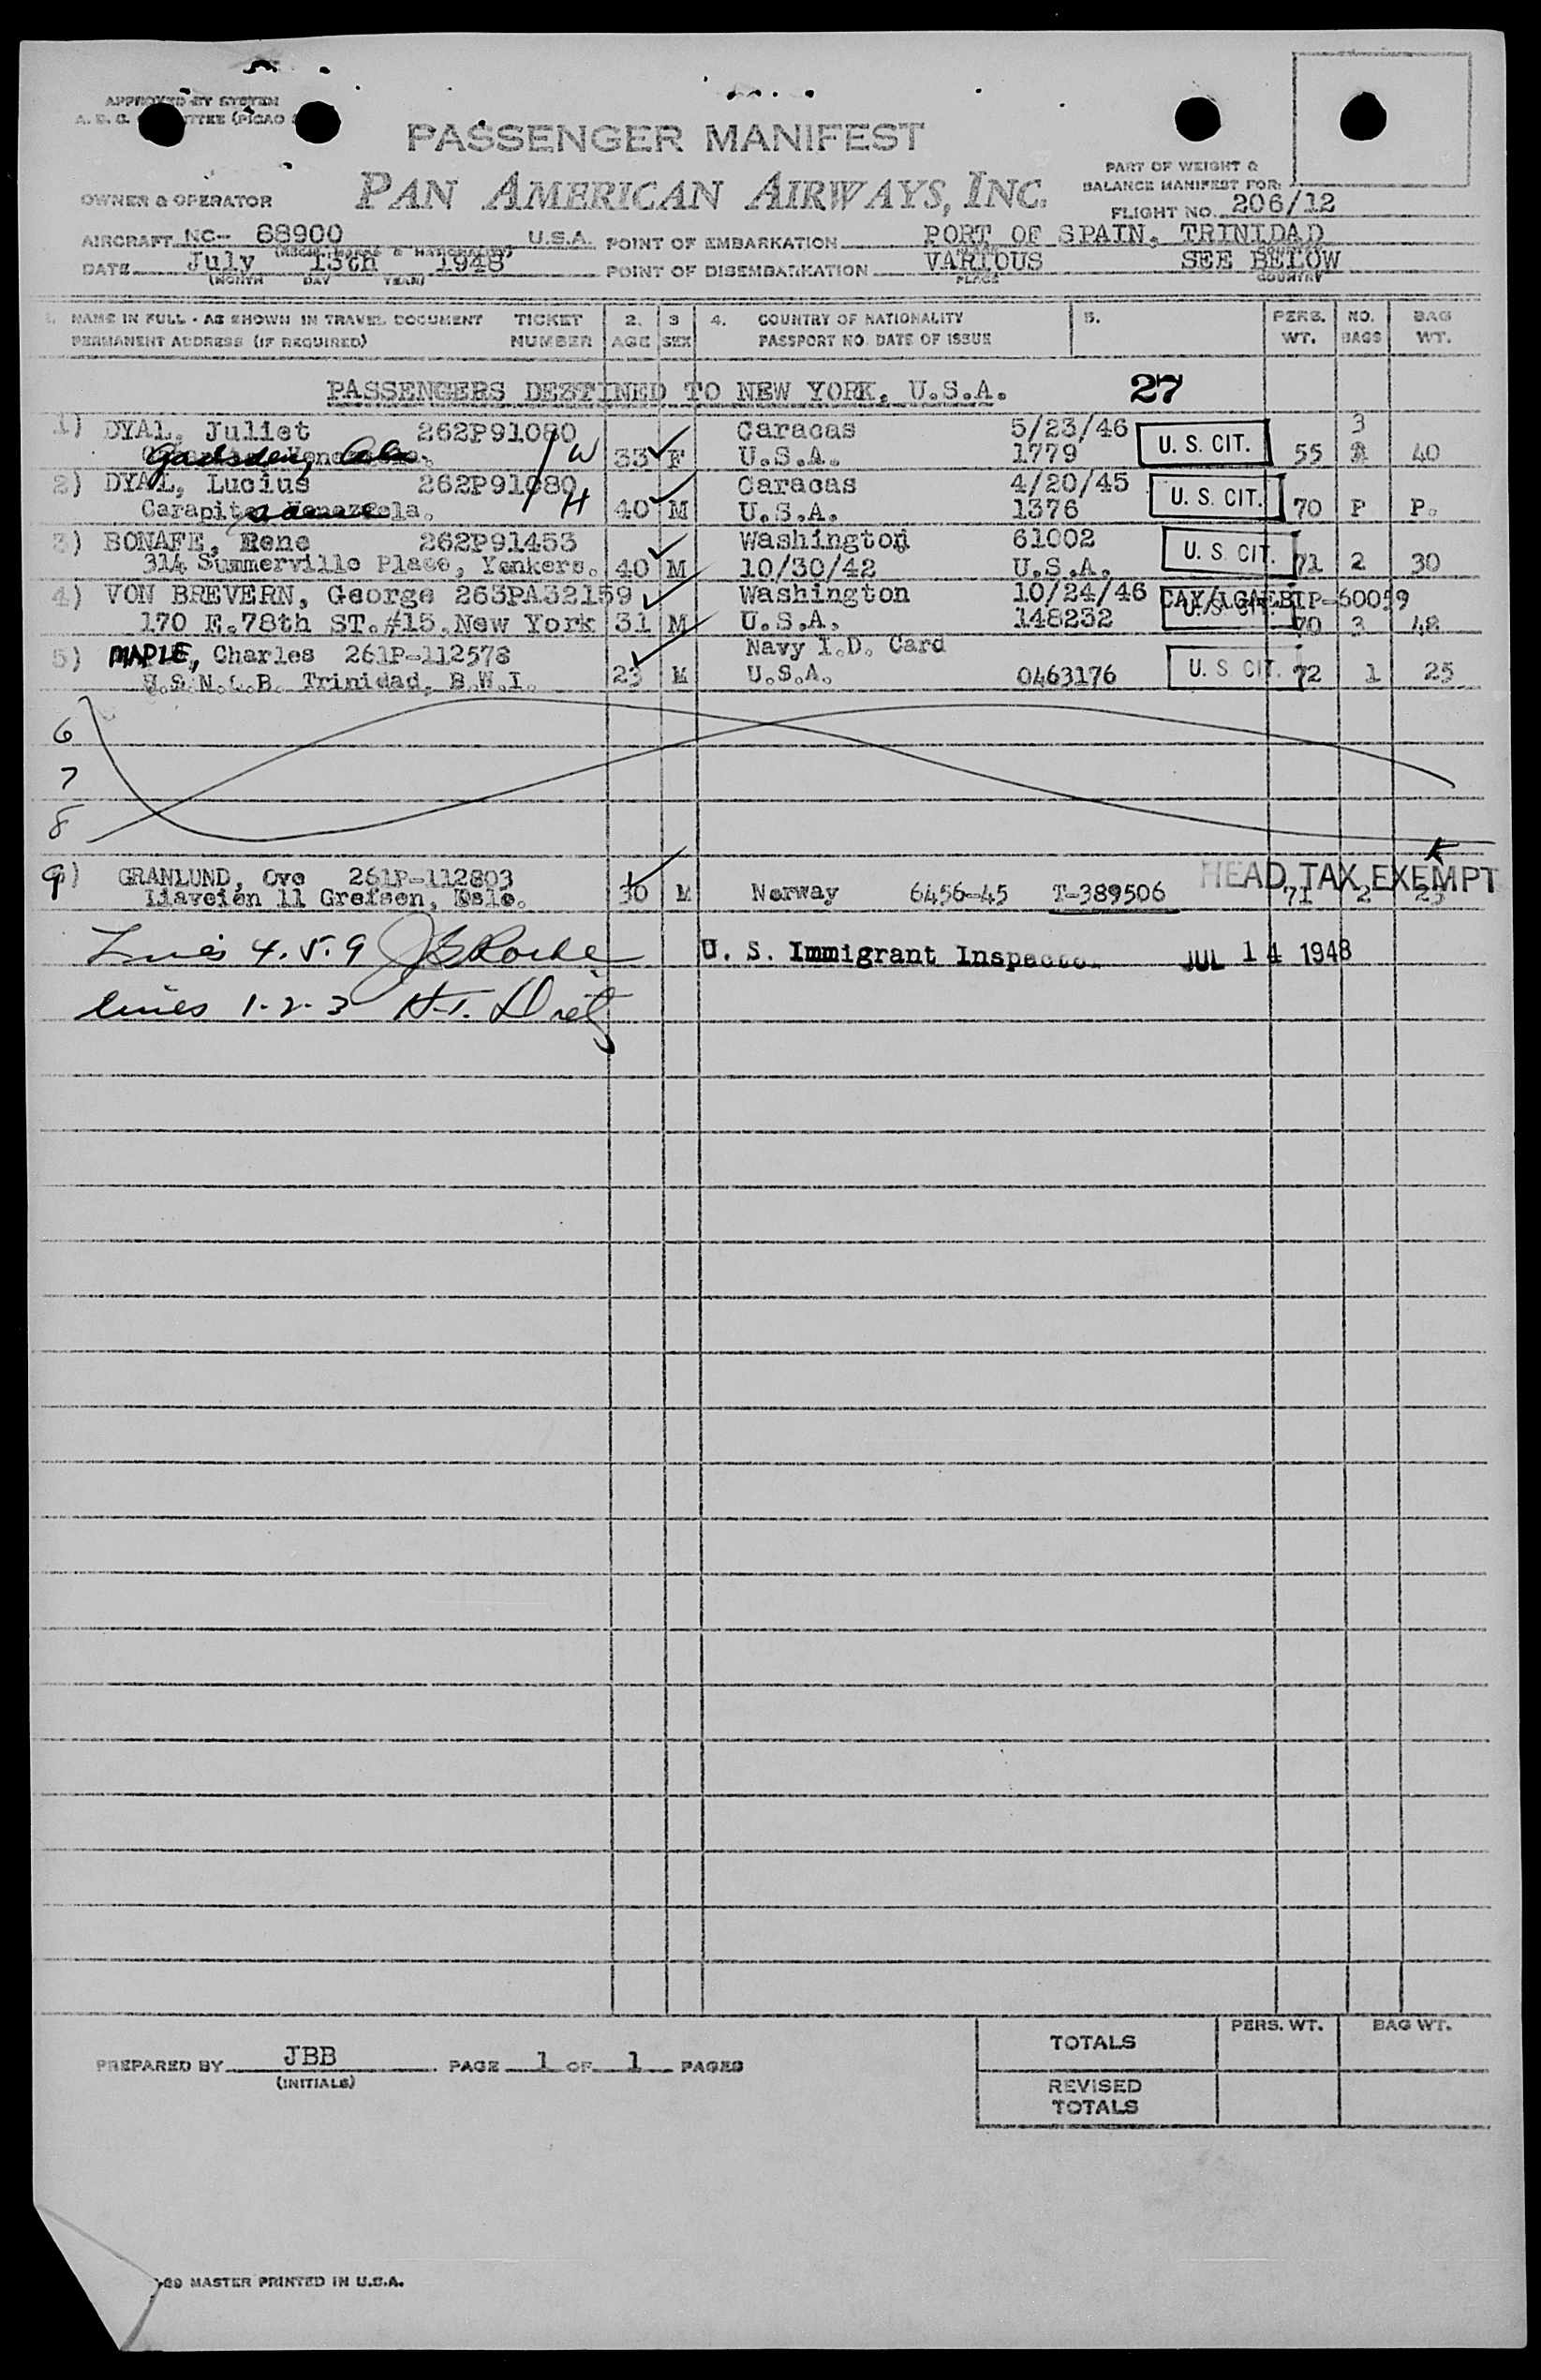 APPROVED BY SYSTEM
PASSENGER MANIFEST
PAN AMERICAN AIRWAYS, INC.
PART OF WEIGHT &
BALANCE MANIFEST FOR:
OWNER & OPERATOR
FLIGHT NO. 206/12
AIRCRAFT NC- 88900 U.S.A. POINT OF EMBARKATION PORT OF SPAIN, TRINIDAD
DATE July 13th 1948 POINT OF DISEMBARKATION VARIOUS SEE BELOW
(MONTH DAY YEAR) PLACE COUNTRY
1. NAME IN FULL - AS SHOWN IN TRAVEL DOCUMENT TICKET 2. 3 4. COUNTRY OF NATIONALITY 5. PERS. NO. BAG
PERMANENT ADDRESS (IF REQUIRED) NUMBER AGE SEX PASSPORT NO. DATE OF ISSUE WT. BAGS WT.
PASSENGERS DESTINED TO NEW YORK, U.S.A. 27
1) DYAL, Juliet 262P91080 Caracas 5/23/46 3
Gadsden, Ala W 33 F U.S.A. 1779 U. S. CIT. 55 40
2) DYAL, Lucius 262P91080 Caracas 4/20/45
same H 40 M U.S.A. 1376 U. S. CIT. 70 P P.
3) BONAFE, Rene 262P91453 Washington 61002
314 Summerville Place, Yonkers. 40 M 10/30/42 U.S.A. U. S. CIT. 71 2 30
4) VON BREVERN, George 263PA32159 Washington 10/24/46
170 E.78th ST.#15,New York 31 M U.S.A. 148232 U. S. CIT. 70 3 48
5) MAPLE, Charles 261P-112578 Navy I.D. Card
U.S.N.O.B. Trinidad, B.W.I. 23 M U.S.A. 0463176 U. S. CIT. 72 1 25
6
7
8
K
9) GRANLUND, Ove 261P-112803 HEAD TAX EXEMPT
11 Grefsen, Oslo. 30 M Norway 6456-45 T-389506 71 2 25
Lines 4.5.9 U. S. Immigrant Inspector JUL 14 1948
lines 1-2-3
TOTALS PERS. WT. BAG WT.
PREPARED BY JBB PAGE 1 OF 1 PAGES
(INITIALS)
REVISED
TOTALS
MASTER PRINTED IN U.S.A.